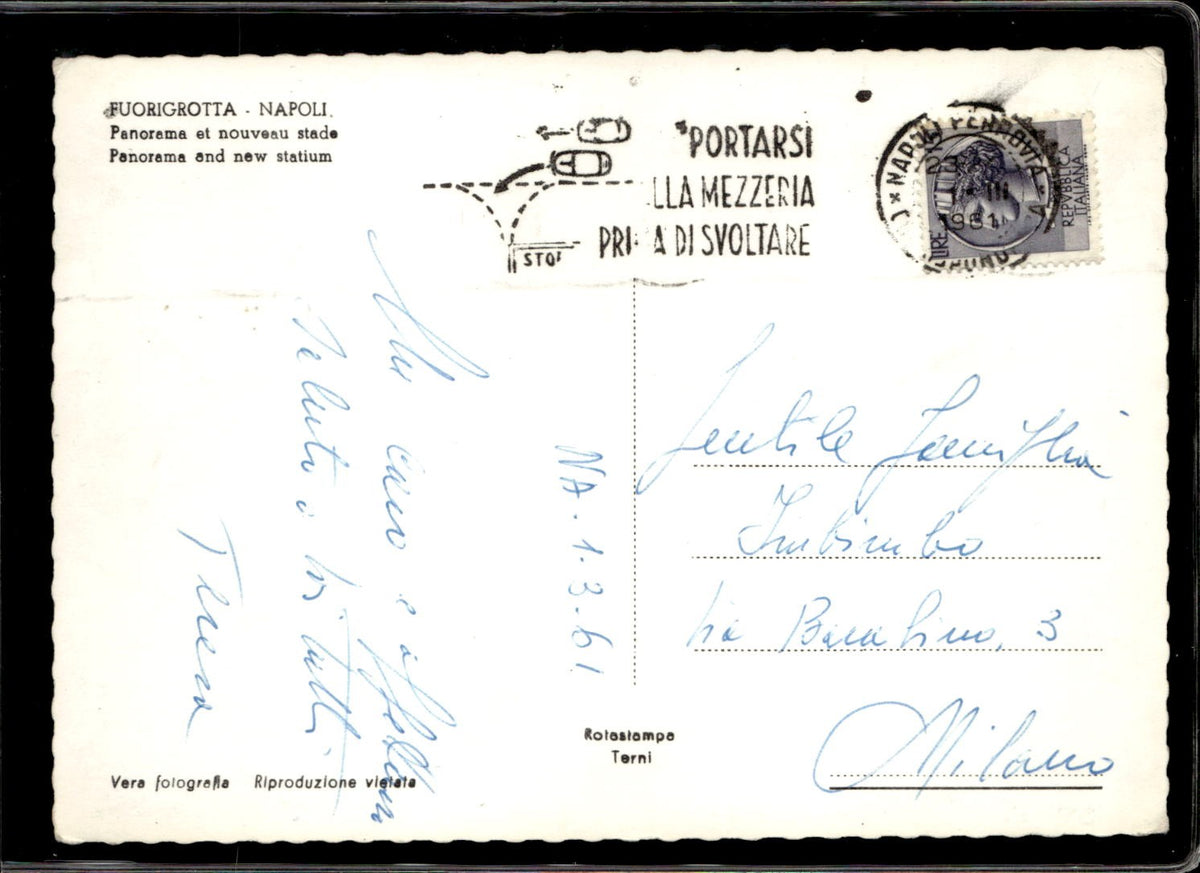 FUORIGROTTA - NAPOLI.
Panorama et nouveau stade
Panorama and new statium
PORTARSI
LLA MEZZERIA
PRI A DI SVOLTARE
STO
NAPOLI FERROVIA
1961
LIRE
REPVBBLICA
ITALIANA
Un caro e
saluto a voi tutti
Teresa
NA. 1.3.61
Gentile Famiglia
Imbimbo
Via 3
Milano
Rotastampa
Terni
Vera fotografia Riproduzione vietata